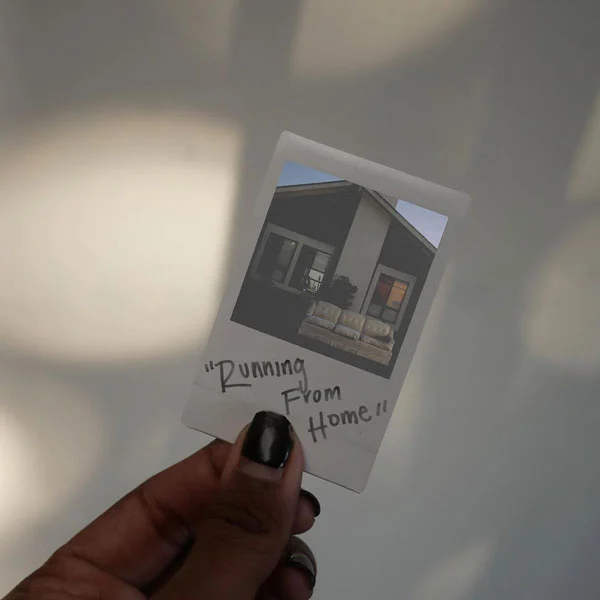 "Running
From
Home"